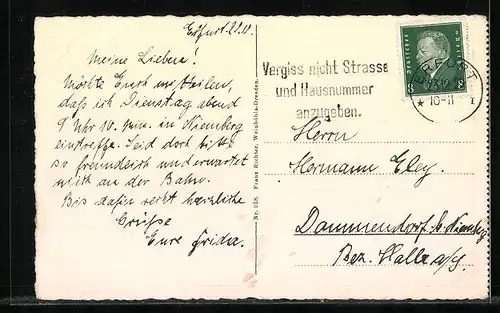 Erfurt 20.10.
Meine Lieben!
Möchte Euch mitteilen,
daß ich Dienstag abend
9 Uhr 10 min. in Niemberg
eintreffe. Seid doch bitte
so freundlich und erwartet
mich an der Bahn.
Bis dahin recht herzliche
Grüße
Eure Frida.
Nr. 958. Franz Richter, Weinböhla-Dresden.
Vergiss nicht Strasse
und Hausnummer
anzugeben.
ERFURT
* 10-11
DEUTSCHES REICH
8 8
Herrn
Hermann Eley.
Dammendorf b. Niemberg
Bez. Halle a/S.